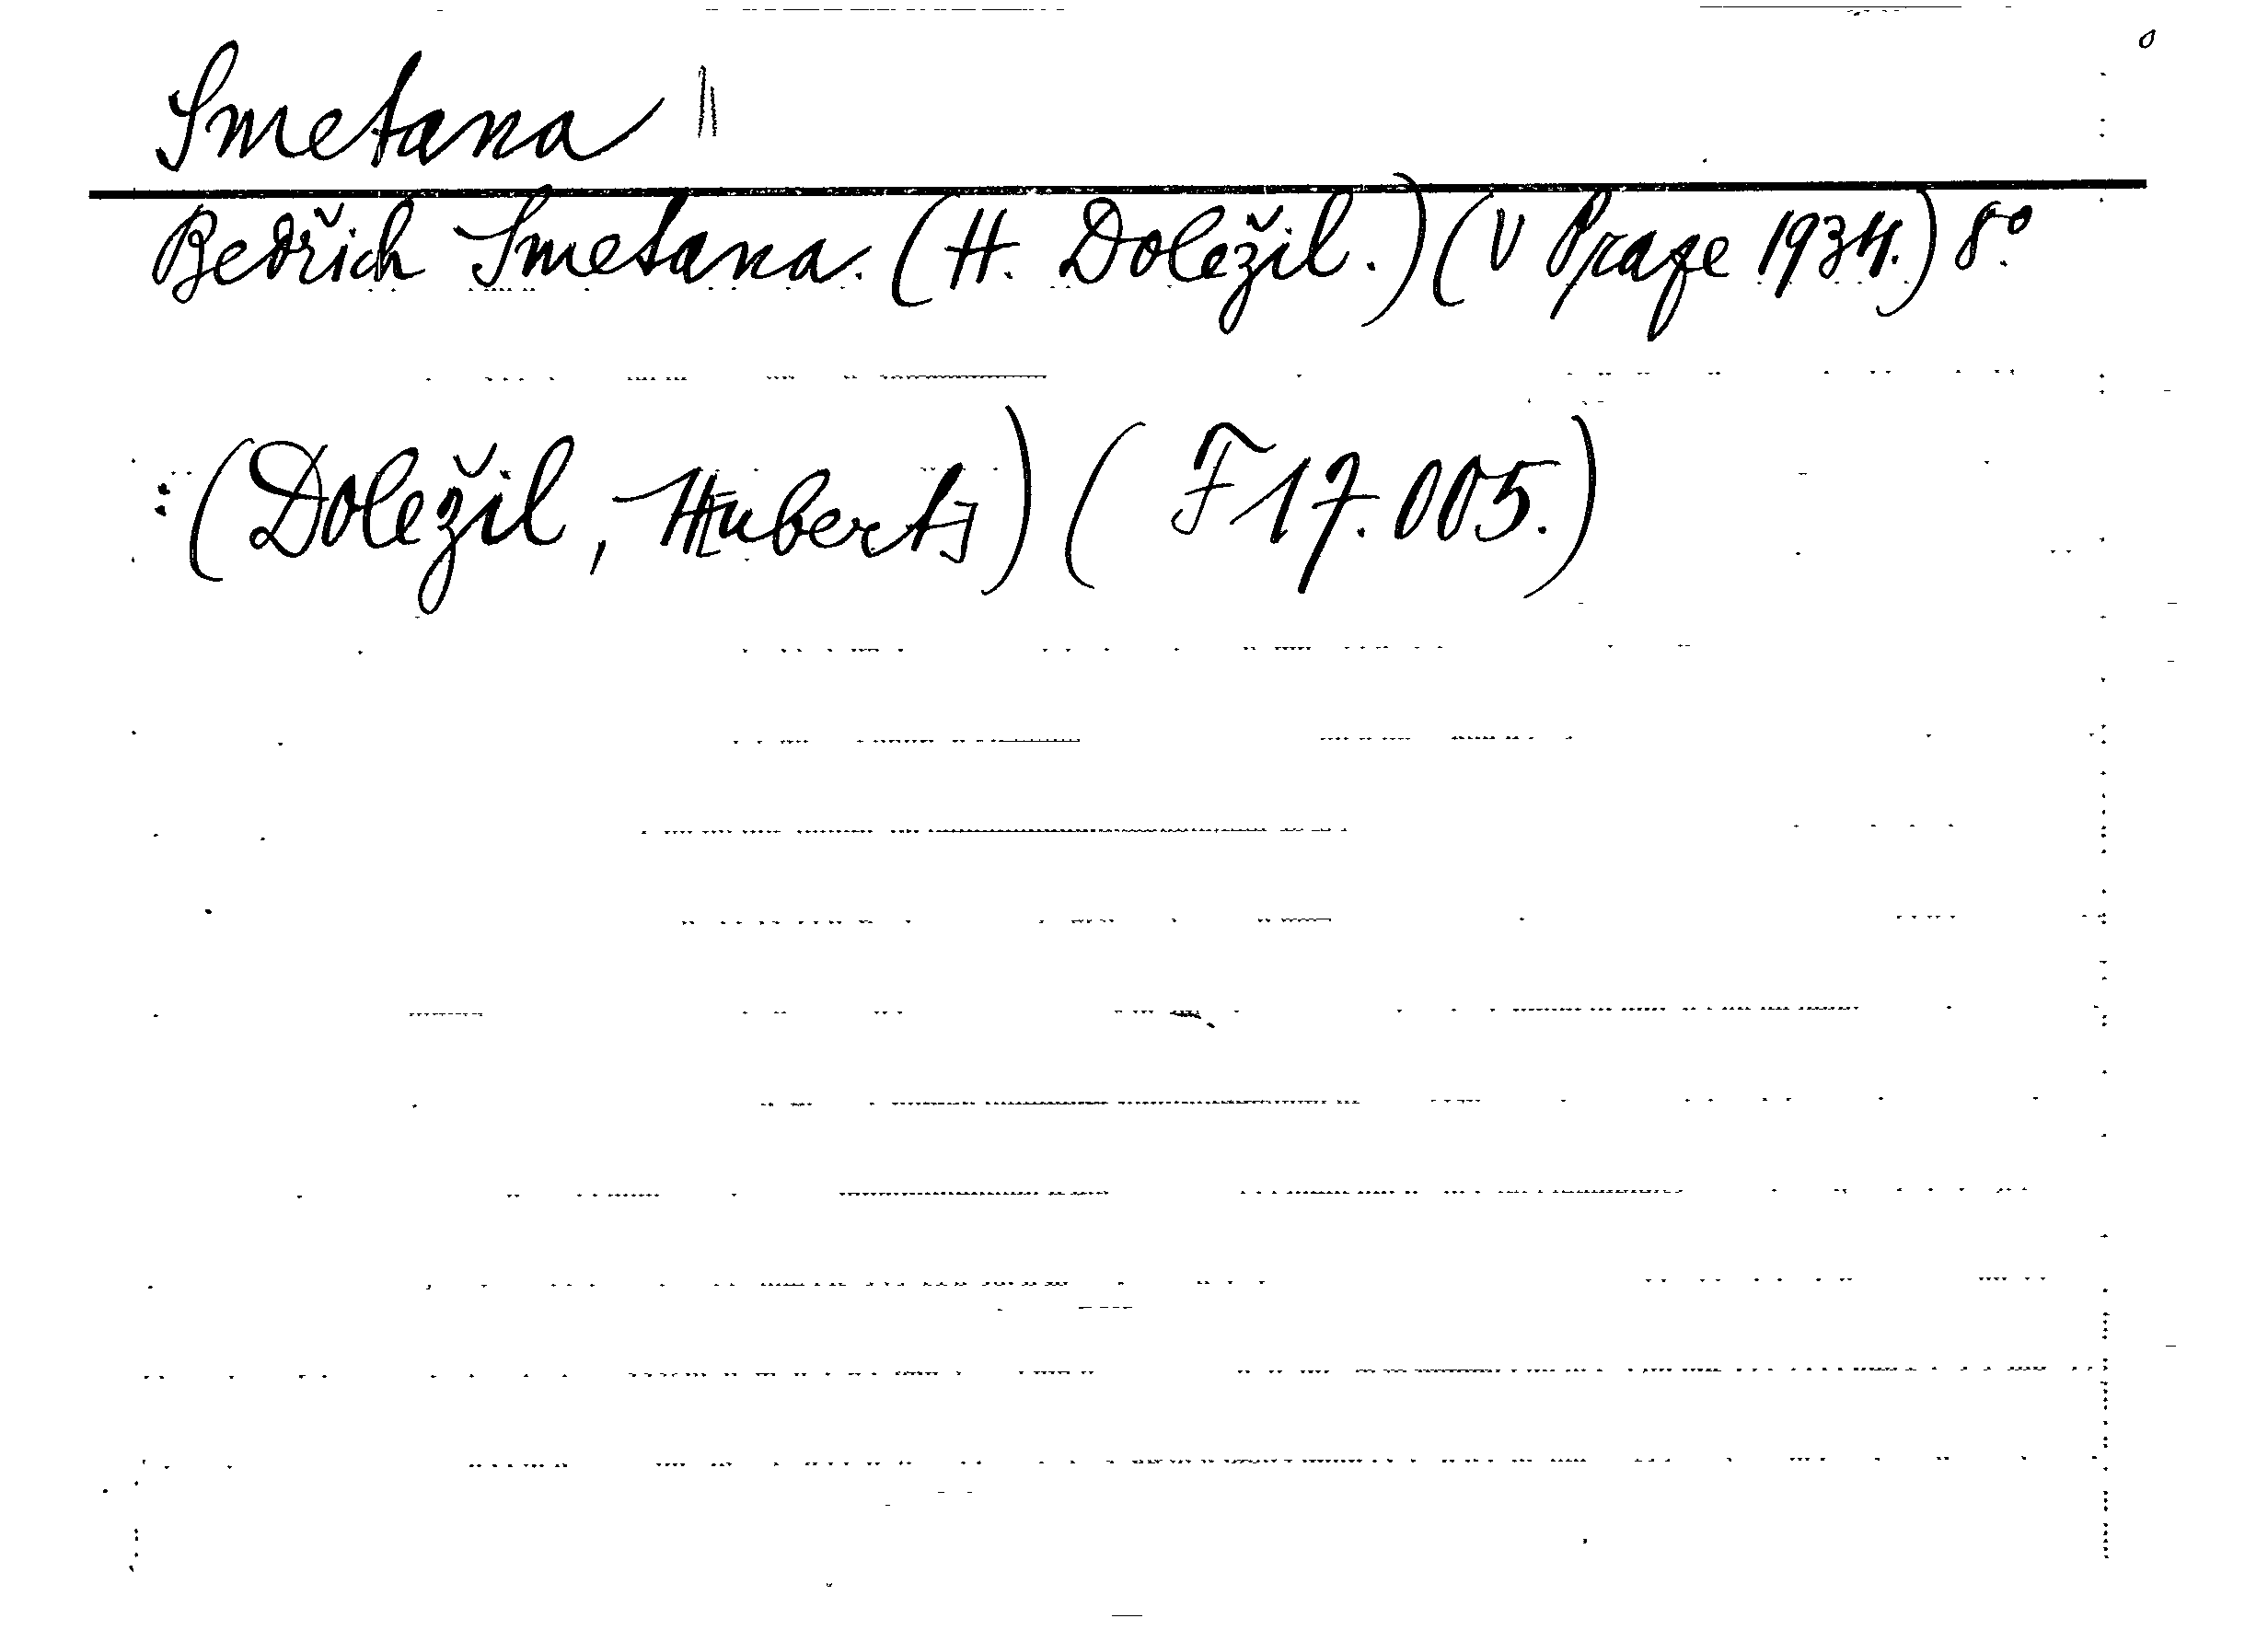 Smetana
Bedřich Smetana. (H. Doležil.) (V Praze 1934.) 8°.
(Doležil, Hubert) (F 17.005.)